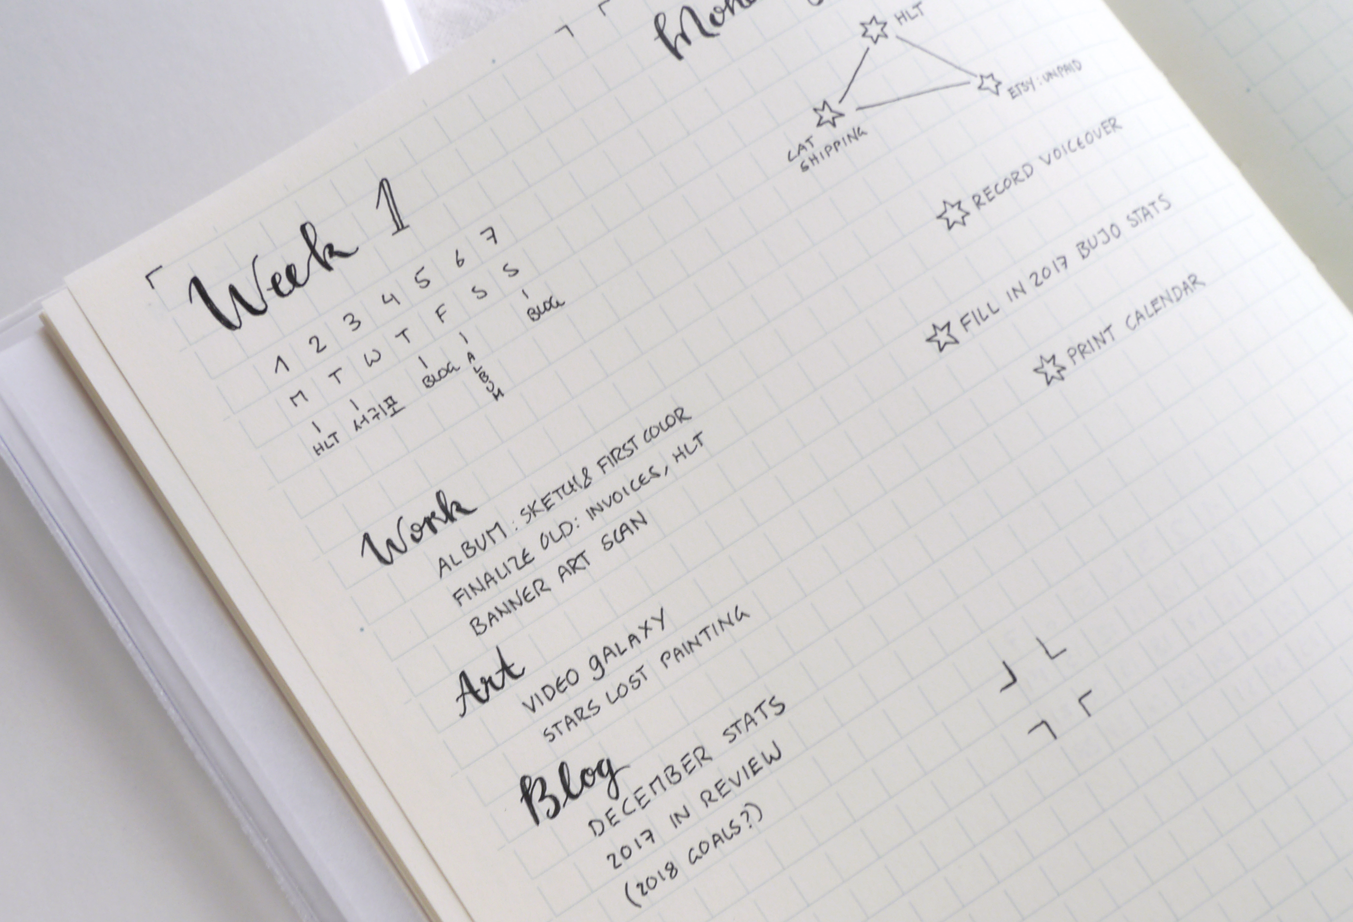 Week 1
1 2 3 4 5 6 7
M T W T F S S
HLT 서귀포 BLOG ALBUM BLOG
Work
ALBUM: SKETCH & FIRST COLOR
FINALIZE OLD: INVOICES, HLT
BANNER ART SCAN
Art
VIDEO GALAXY
STARS LOST PAINTING
Blog
DECEMBER STATS
2017 IN REVIEW
(2018 GOALS?)
HLT
ETSY: UNPAID
CAT
SHIPPING
RECORD VOICEOVER
FILL IN 2017 BUJO STATS
PRINT CALENDAR